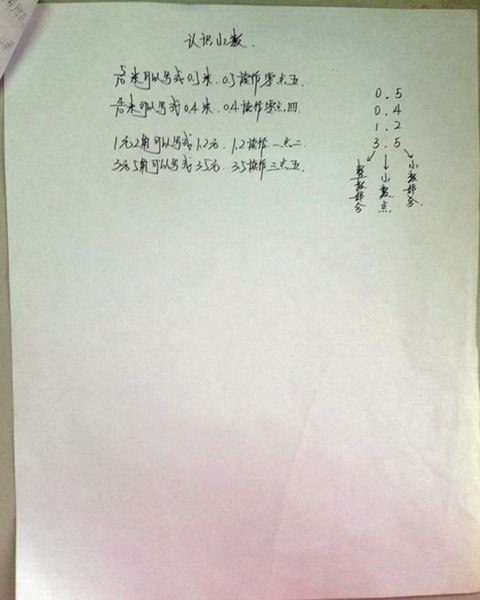 认识小数.
5/10米可以写成0.5米. 0.5读作零点五.
4/10米可以写成0.4米. 0.4读作零点四.
1元2角可以写成1.2元. 1.2读作一点二.
3元5角可以写成3.5元. 3.5读作三点五.
0.5
0.4
1.2
3.5
整数部分
小数点
小数部分.